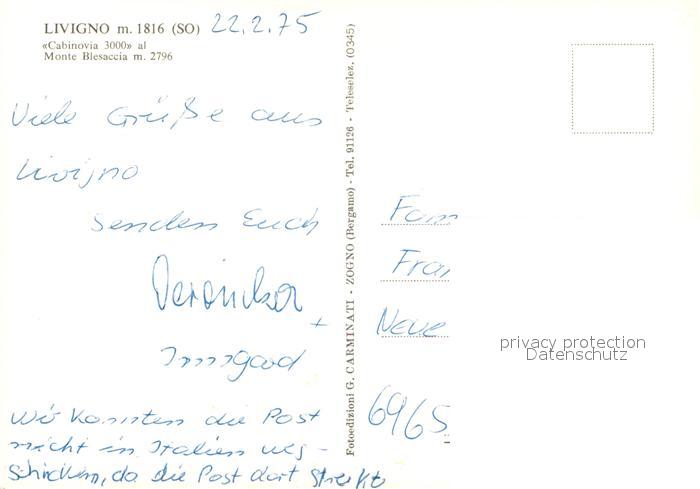 LIVIGNO m. 1816 (SO) 22.2.75
«Cabinovia 3000» al
Monte Blesaccia m. 2796
Viele Grüße aus
Livigno
senden Euch
Veronika
+
Irmgard
Wir konnten die Post
nicht in Italien weg-
schicken, da die Post dort streikte
Fotoedizioni G. CARMINATI - ZOGNO (Bergamo) - Tel. 91126 - Teleselez. (0345)
Fam
Fran
Neue
6965
privacy protection
Datenschutz